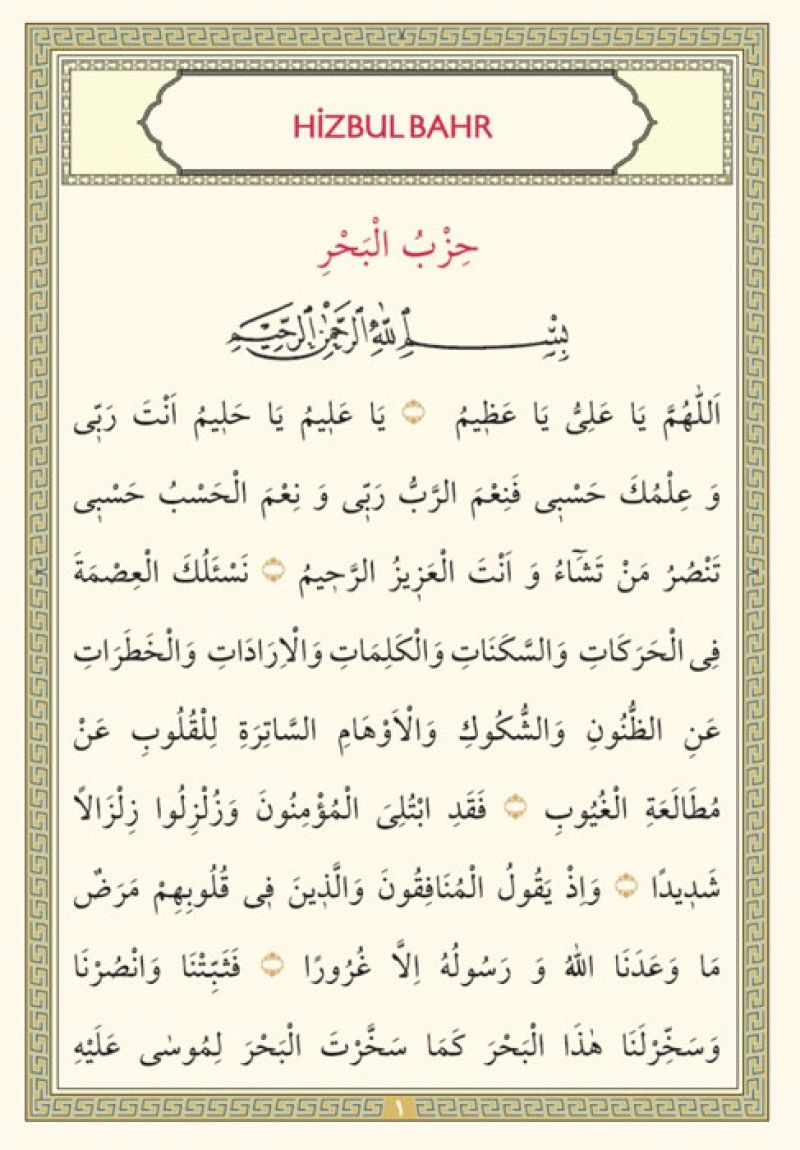 HİZBUL BAHR
حِزْبُ الْبَحْرِ
بِسْمِ اللّٰهِ الرَّحْمٰنِ الرَّحِيمِ
اَللّٰهُمَّ يَا عَلِىُّ يَا عَظ۪يمُ ۝ يَا عَل۪يمُ يَا حَل۪يمُ اَنْتَ رَبّ۪ى
وَ عِلْمُكَ حَسْب۪ى فَنِعْمَ الرَّبُّ رَبّ۪ى وَ نِعْمَ الْحَسْبُ حَسْب۪ى
تَنْصُرُ مَنْ تَشَٓاءُ وَ اَنْتَ الْعَز۪يزُ الرَّح۪يمُ ۝ نَسْئَلُكَ الْعِصْمَةَ
فِى الْحَرَكَاتِ وَالسَّكَنَاتِ وَالْكَلِمَاتِ وَالْاِرَادَاتِ وَالْخَطَرَاتِ
عَنِ الظُّنُونِ وَالشُّكُوكِ وَالْاَوْهَامِ السَّاتِرَةِ لِلْقُلُوبِ عَنْ
مُطَالَعَةِ الْغُيُوبِ ۝ فَقَدِ ابْتُلِىَ الْمُؤْمِنُونَ وَزُلْزِلُوا زِلْزَالًا
شَد۪يدًا ۝ وَاِذْ يَقُولُ الْمُنَافِقُونَ وَالَّذ۪ينَ ف۪ى قُلُوبِهِمْ مَرَضٌ
مَا وَعَدَنَا اللّٰهُ وَ رَسُولُهُ اِلَّا غُرُورًا ۝ فَثَبِّتْنَا وَانْصُرْنَا
وَسَخِّرْلَنَا هٰذَا الْبَحْرَ كَمَا سَخَّرْتَ الْبَحْرَ لِمُوسٰى عَلَيْهِ
١